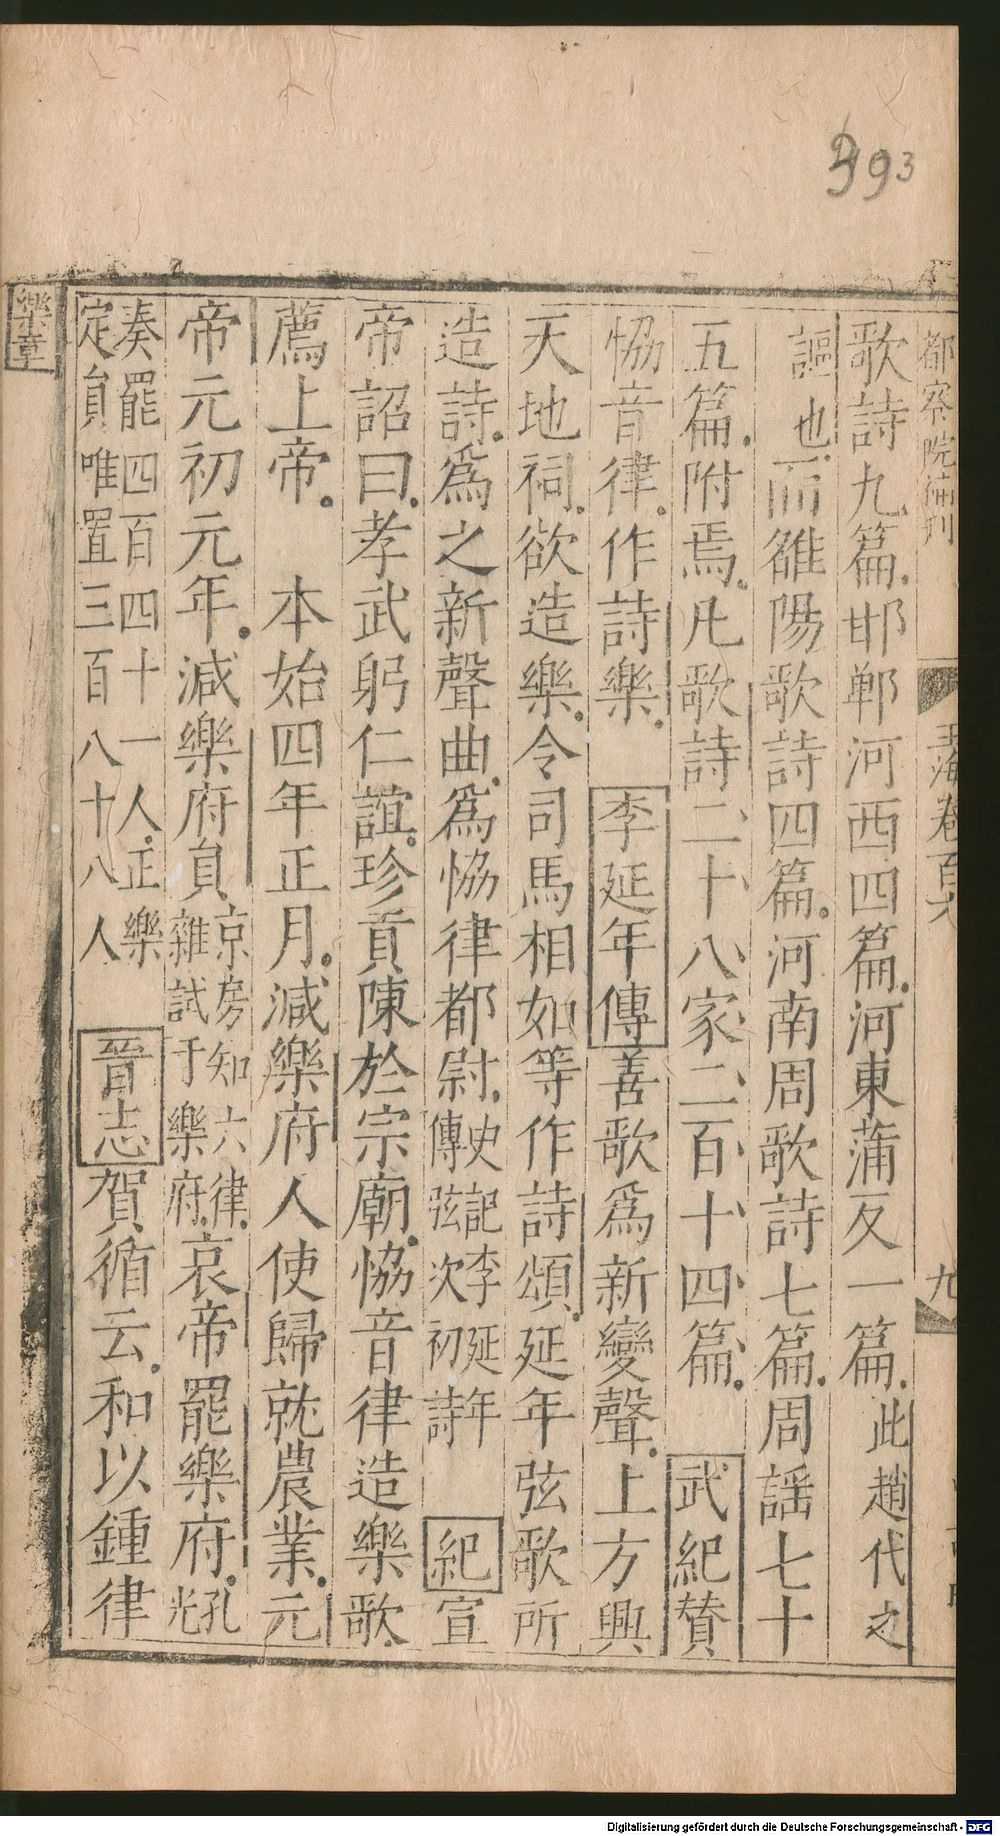 993
都察院
玉海卷百六
九
歌詩九篇邯鄲河西四篇河東蒲反一篇此趙代之
謳也而雒陽歌詩四篇河南周歌詩七篇周謠七十
五篇附焉凡歌詩二十八家二百十四篇 武紀贊
恊音律作詩樂 李延年傳善歌爲新變聲上方興
天地祠欲造樂令司馬相如等作詩頌延年弦歌所
造詩爲之新聲曲爲恊律都尉史記李延年
傳弦次初詩 紀宣
帝詔曰孝武躬仁誼珍貢陳於宗廟恊音律造樂歌
薦上帝 本始四年正月減樂府人使歸就農業元
帝元初元年減樂府貟京房知六律
雜試于樂府哀帝罷樂府孔
光
奏罷四百四十一人正樂
定貟唯置三百八十八人 晉志賀循云和以鍾律
樂章
Digitalisierung gefördert durch die Deutsche Forschungsgemeinschaft - DFG